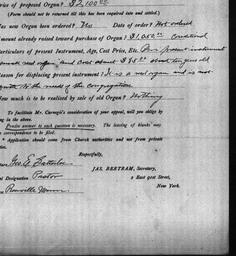 price of proposed Organ? $2,100.00
(Form should not be returned till this has been required into and settled.)
as new Organ been ordered? Yes Date of order? Not ordered
mount already raised toward purchase of Organ? $1050.00
Particulars of present Instrument, Age, Cost Price, Etc. Our present instrument
reed organ and cost about $75.00 ago
Reason for displacing present Instrument? It is a reed organ and is not
to the needs of the congregation
ow much is to be realized by sale of old Organ? Nothing
To facilitate Mr. Carnegie's consideration of your appeal, will you oblige by
in the above.
Precise answer to each question is necessary. The leaving of blanks
correspondence to be filed.
Application should come from Church authorities and not from private
Respectfully,
Geo. E.
JAS. BERTRAM, Secretary,
ial Designation Pastor
2 East 91st Street,
New York.
Minn